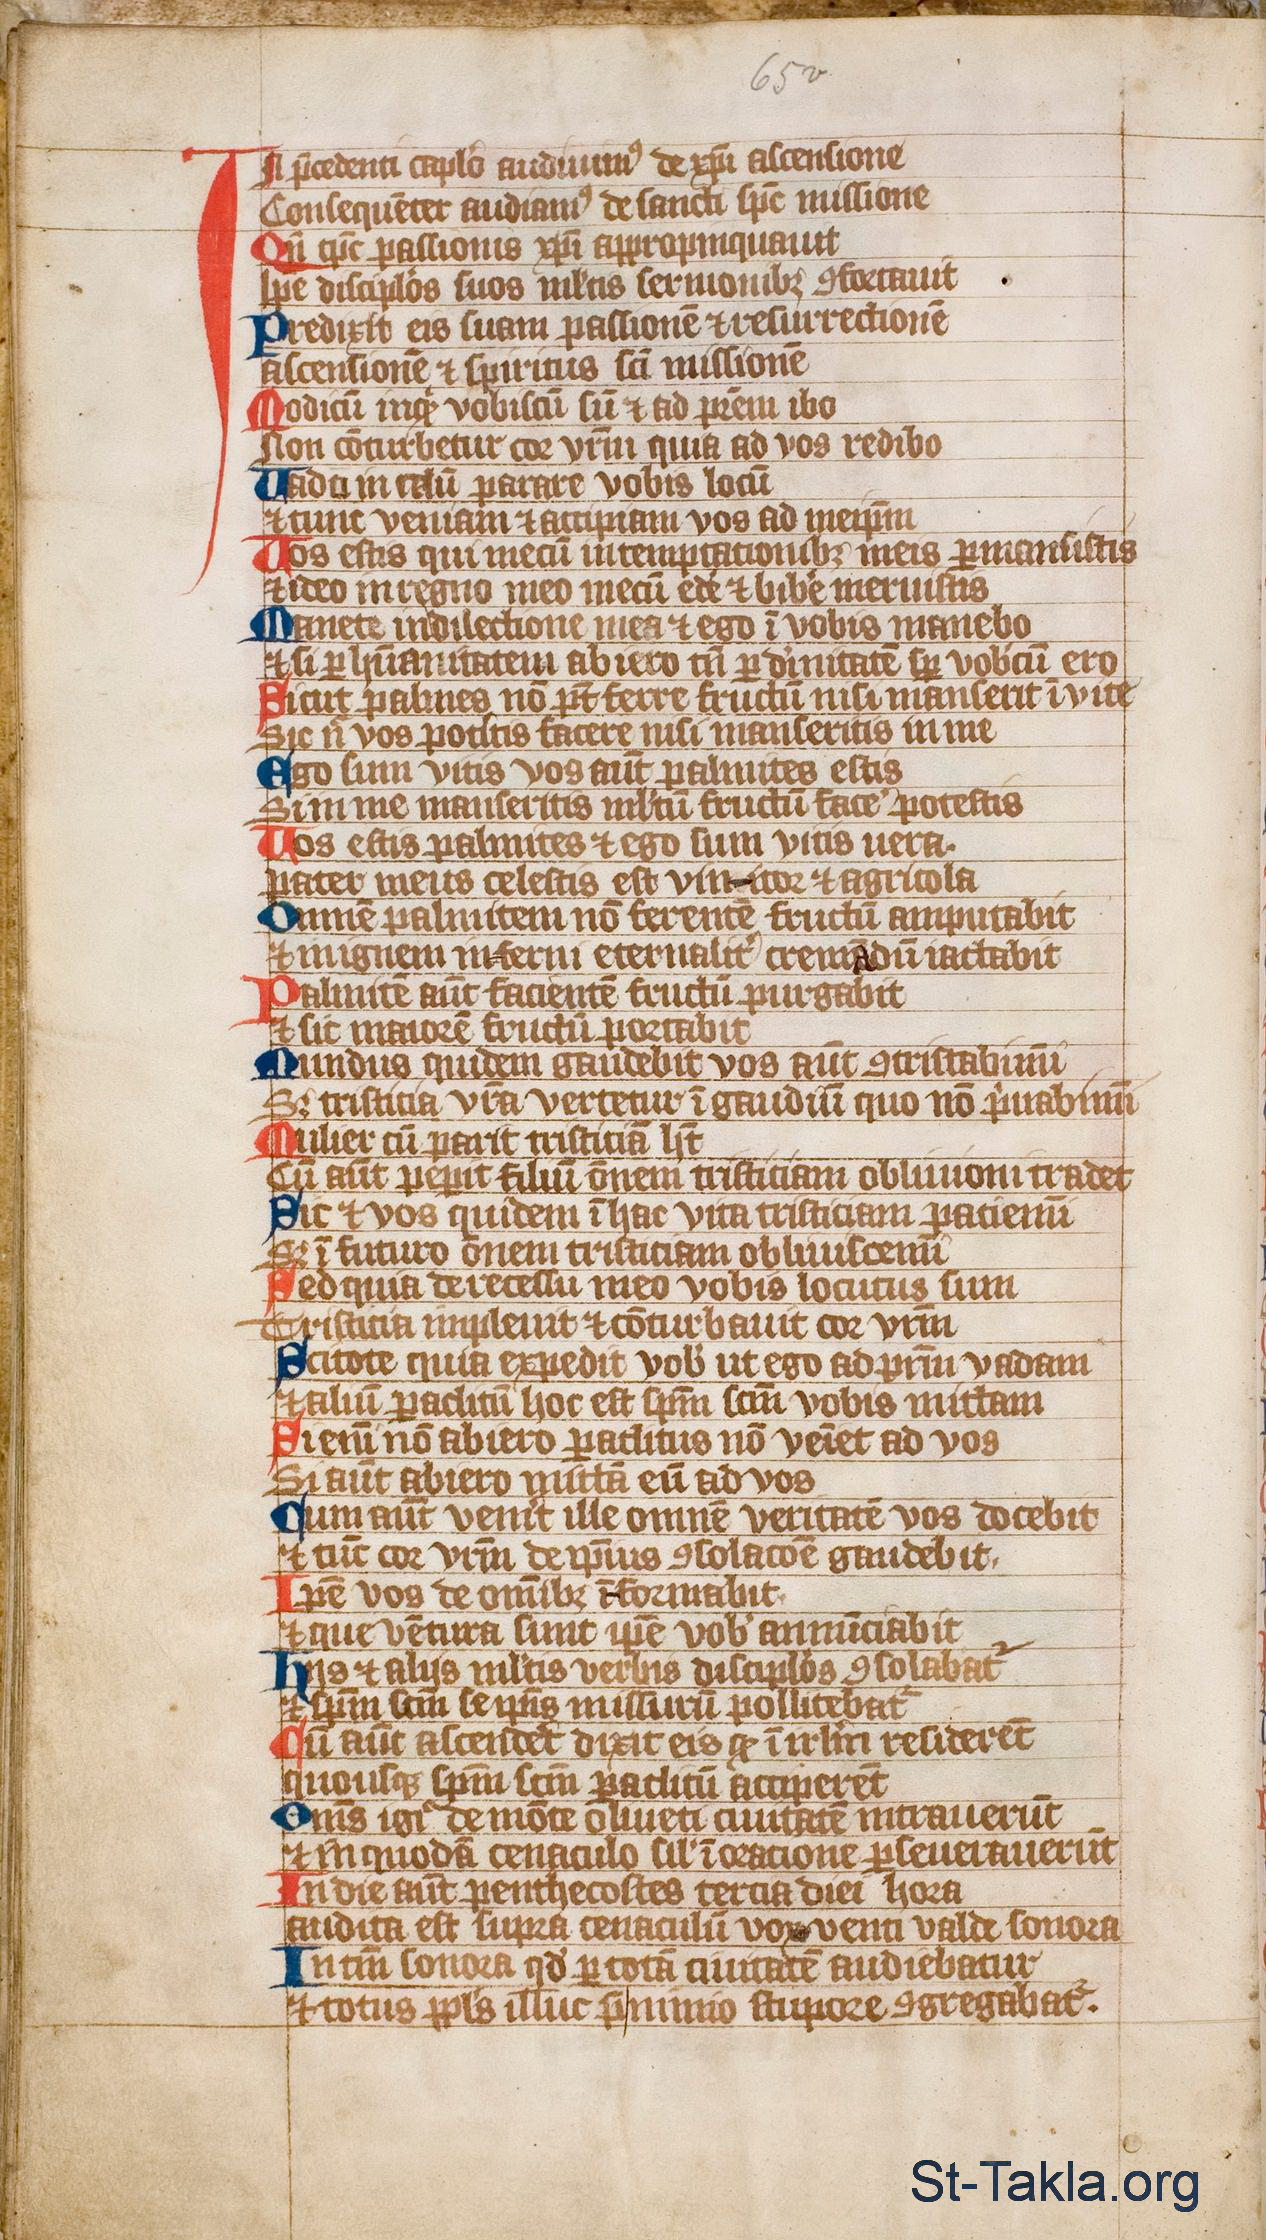 65v
In p̄cedenti capl'o audiuimꝰ de xp̄i ascensione
Consequēter audiamꝰ de sancti sp̄c missione
Qn̄ tp̄c passionis xp̄i appropinquauit
Ip̄e discipl'os suos ml'tis sermonibꝫ ꝯfortauit
Predixit eis suam passionē ⁊ resurrectionē
ascensionē ⁊ spiritus sc̄i missionē
Modicū inqͥt vobiscū sū ⁊ ad pr̄em ibo
Non cōturbetur cor vr̄m quia ad vos redibo
Vado in celū parare vobis locū
⁊ tunc veniam ⁊ accipiam vos ad meip̄m
Vos estis qui mecū in temptationibꝫ meis ꝑmansistis
⁊ ideo in regno meo mecū ede' ⁊ bibe' meruistis
Manete in dilectione mea ⁊ ego ī vobis manebo
⁊ si ꝑ hūanitatem abiero tn̄ ꝑ diuinitatē sp̄ vob'cū ero
Sicut palmes nō pt̄ ferre fructū nisi manserit ī vite
Sic n̄ vos potestis facere nisi manseritis in me
Ego sum vitis vos aut̄ palmites estis
Si in me manseritis ml'tū fructū face' potestis
Vos estis palmites ⁊ ego sum vitis uera.
pater meus celestis est vinitor ⁊ agricola
Omnē palmitem nō ferentē fructū amputabit
⁊ in ignem inferni eternalit' cremādū iactabit
Palmitē aut̄ facientē fructū purgabit
⁊ sic maiorē fructū portabit
Mundus quidem gaudebit vos aut̄ ꝯtristabimī
Sꝫ tristicia vr̄a vertetur ī gaudiū quo nō pͥuabimī
Mulier cū parit tristiciā h̄t
Cū aut̄ pepit filiū ōnem tristiciam obliuioni tradet
Sic ⁊ vos quidem ī hac vita tristiciam patiemī
Sꝫ ī futuro ōnem tristiciam obliuiscemī
Sed quia de recessu meo vobis locutus sum
Tristicia impleuit ⁊ cōturbauit cor vr̄m
Scitote quia expedit vob' ut ego ad pr̄m vadam
⁊ aliū ꝑaclitū hoc est sp̄m scm̄ vobis mittam
Si enī nō abiero ꝑaclitus nō veīet ad vos
Si aut̄ abiero mittā eū ad vos
Cum aut̄ venit ille omnē veritatē vos docebit
⁊ tūc cor vr̄m de ip̄ius ꝯsolacōe gaudebit.
Ip̄e vos de omībꝫ īformabit.
⁊ que vētura sunt ip̄e vob' annūciabit
Hijs ⁊ alijs ml'tis verbis discipl'os ꝯsolabat᷑
⁊ sp̄m scm̄ se ip̄is missurū pollicebat᷑
Cū aut̄ ascendet' dixit eis qͥ ī irl'm resideret̄
quousqꝫ sp̄m scm̄ ꝑaclitū acciperēt
Om̄s igi᷑ de mōte oliueti ciuitatē intrauerūt
⁊ in quodā cenaculo sil' ī oratione ꝑseuerauerūt
In die aut̄ penthecostes tercia diei hora
audita est supra cenaculū vox venti valde sonora
In tm̄ sonora qd' ꝑ totā ciuitatē audiebatur
⁊ totus ppl's illuc p̄ nimio stupore ꝯgregabat᷑.
St-Takla.org